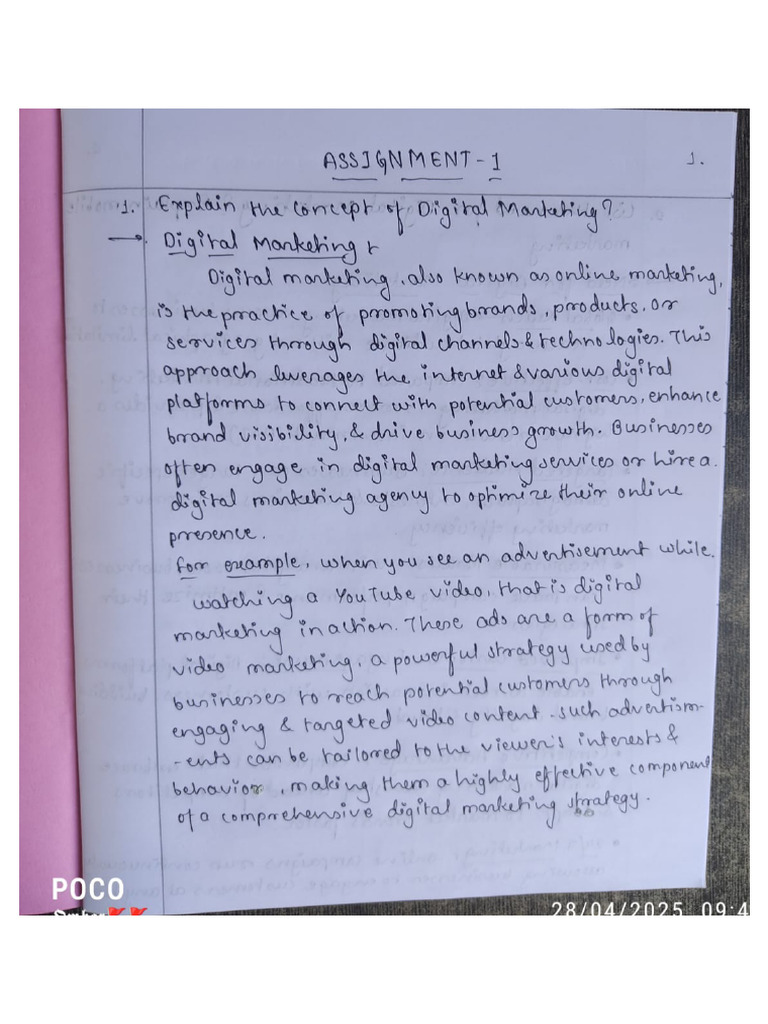 ASSIGNMENT-1
1.
1. Explain the concept of Digital Marketing?
→ Digital Marketing :
Digital marketing, also known as online marketing,
is the practice of promoting brands, products, or
services through digital channels & technologies. This
approach leverages the internet & various digital
platforms to connect with potential customers, enhance
brand visibility, & drive business growth. Businesses
often engage in digital marketing services or hire a
digital marketing agency to optimize their online
presence.
for example, when you see an advertisement while
watching a YouTube video, that is digital
marketing in action. These ads are a form of
video marketing, a powerful strategy used by
businesses to reach potential customers through
engaging & targeted video content. such advertism-
-ents can be tailored to the viewer's interests &
behavior, making them a highly effective component
of a comprehensive digital marketing strategy.
POCO
28/04/2025 09:4